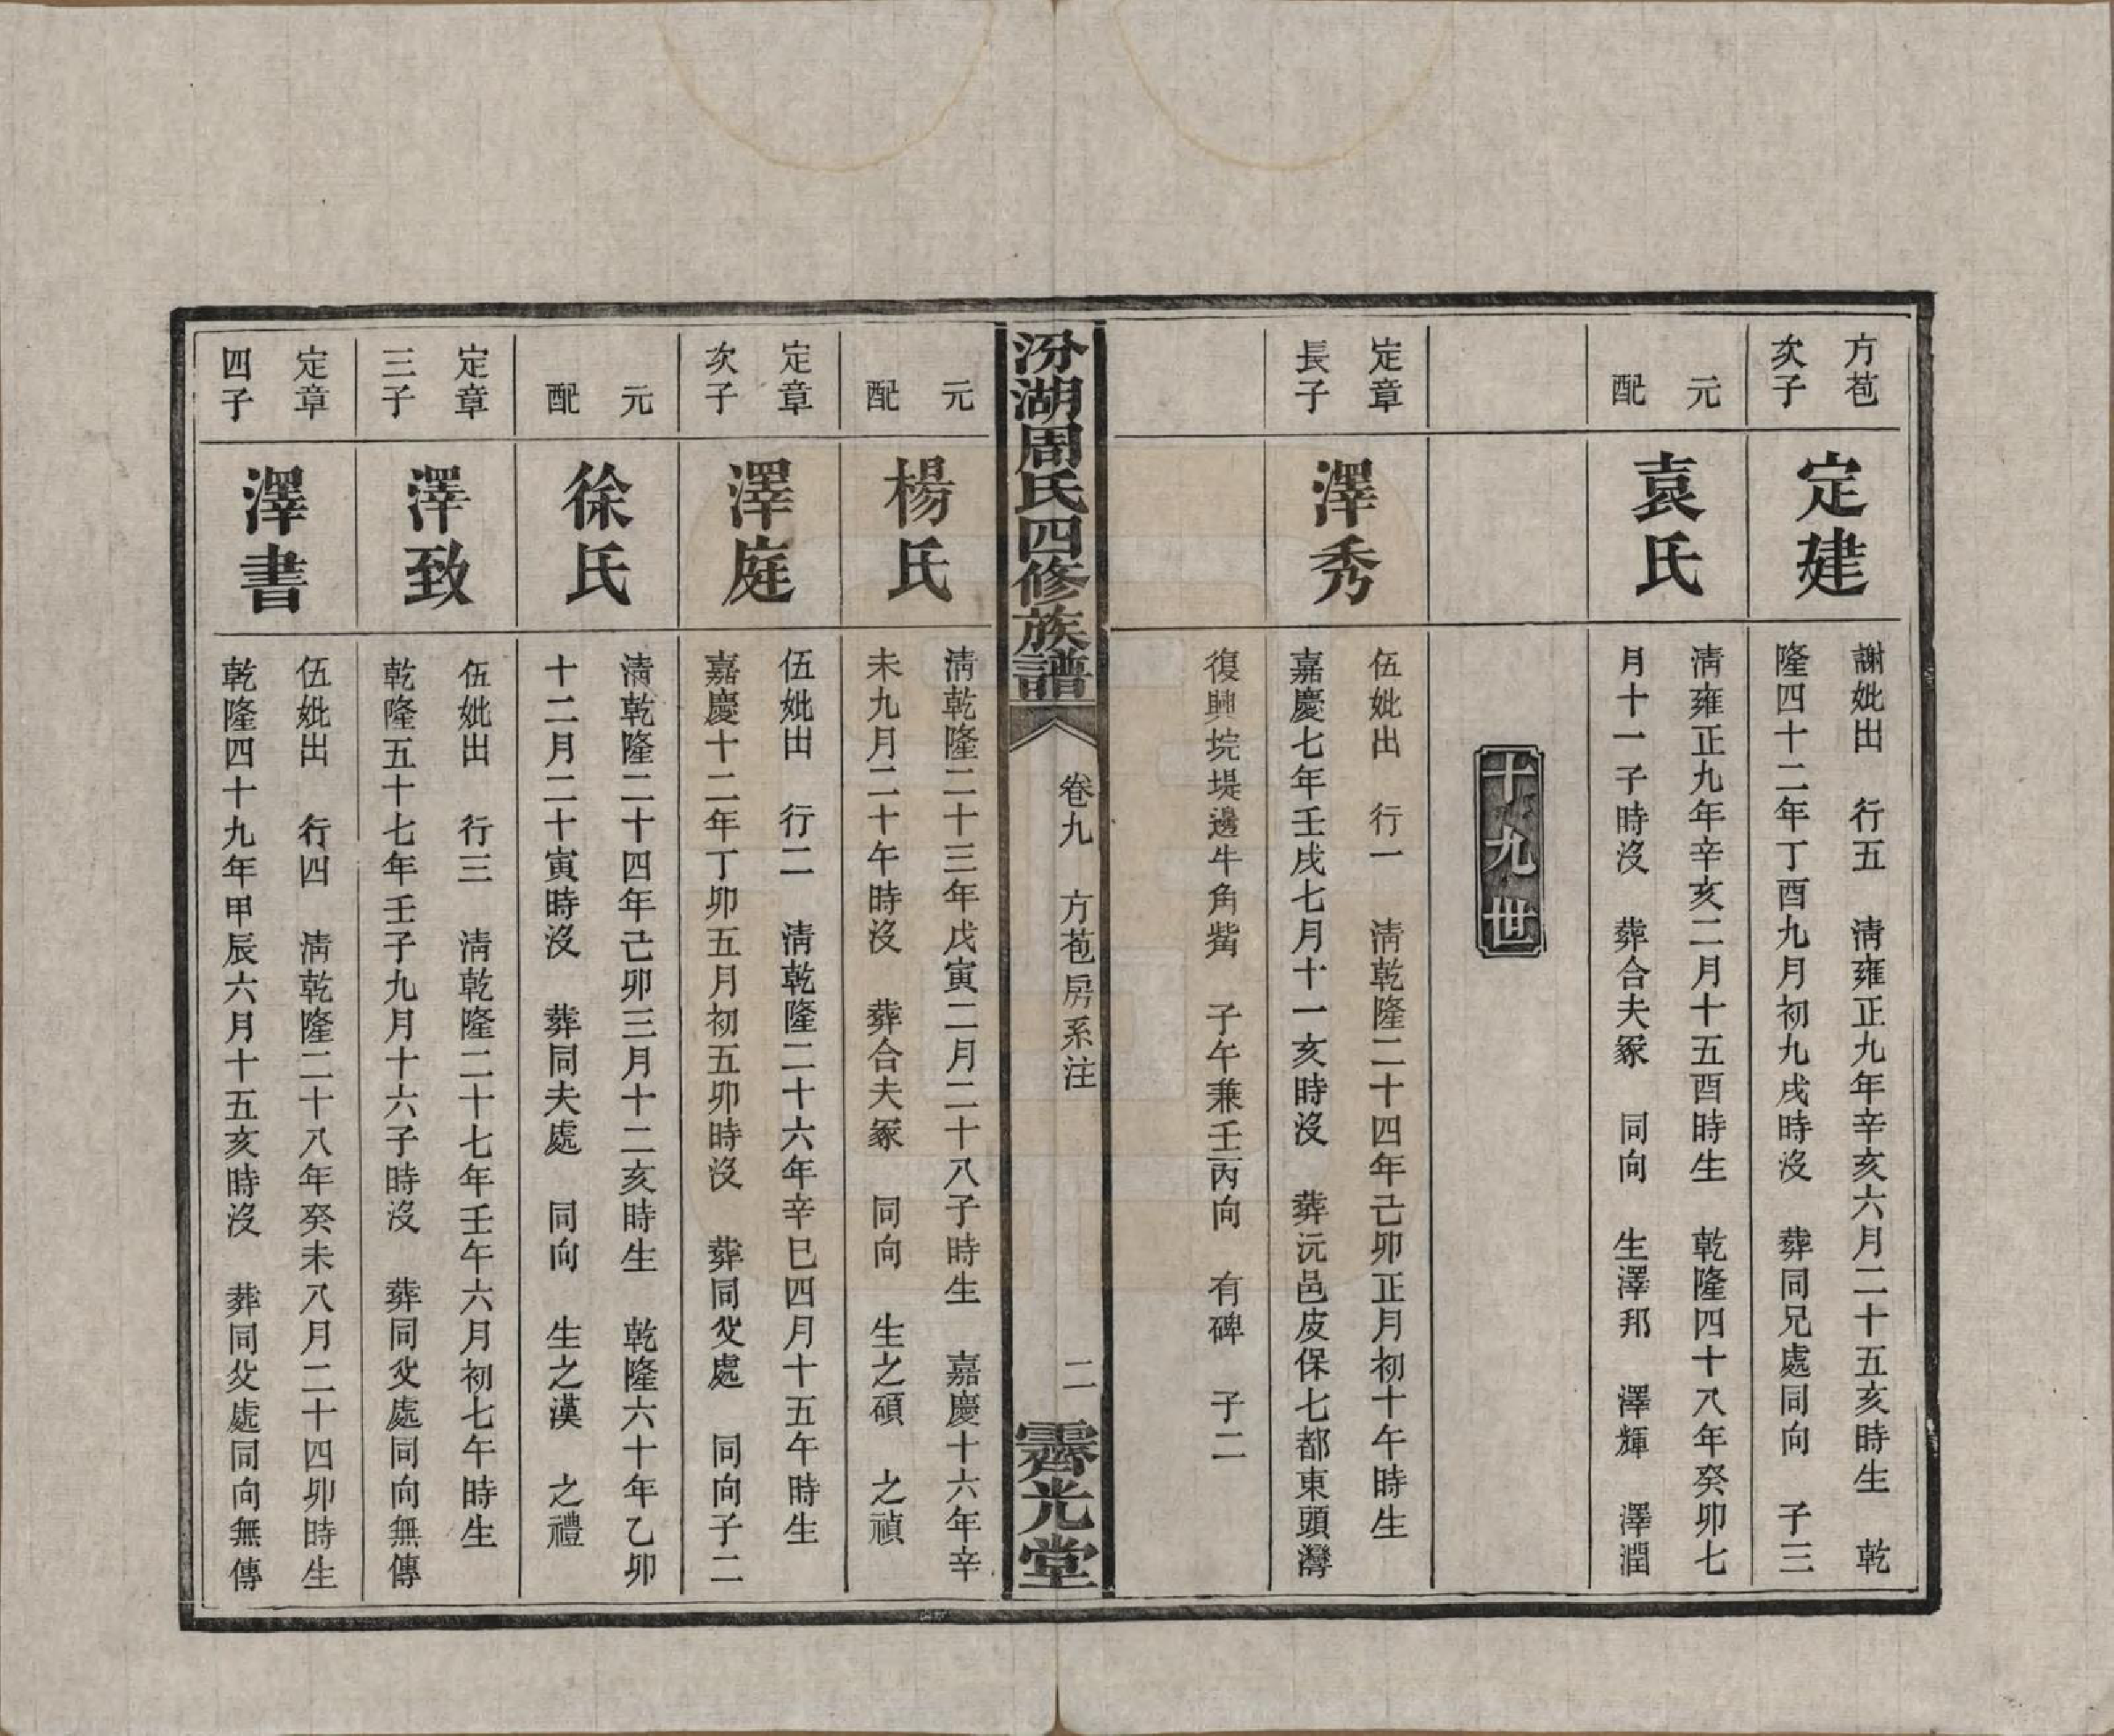 方苞
次子
定建
謝妣出　行五　清雍正九年辛亥六月二十五亥時生　乾
隆四十二年丁酉九月初九戌時沒　葬同兄處同向　子三
元
配
袁氏
清雍正九年辛亥二月十五酉時生　乾隆四十八年癸卯七
月十一子時沒　葬合夫冢　同向　生澤邦　澤輝　澤潤
十九世
定章
長子
澤秀
伍妣出　行一　清乾隆二十四年己卯正月初十午時生
嘉慶七年壬戌七月十一亥時沒　葬沅邑皮保七都東頭灣
復興垸堤邊牛角觜　子午兼壬丙向　有碑　子二
汾湖周氏四修族譜
卷九　方苞房系注
二
霽光堂
元
配
楊氏
清乾隆二十三年戊寅二月二十八子時生　嘉慶十六年辛
未九月二十午時沒　葬合夫冢　同向　生之碩　之禎
定章
次子
澤庭
伍妣出　行二　清乾隆二十六年辛巳四月十五午時生
嘉慶十二年丁卯五月初五卯時沒　葬同父處　同向子二
元
配
徐氏
清乾隆二十四年己卯三月十二亥時生　乾隆六十年乙卯
十二月二十寅時沒　葬同夫處　同向　生之漢　之禮
定章
三子
澤致
伍妣出　行三　清乾隆二十七年壬午六月初七午時生
乾隆五十七年壬子九月十六子時沒　葬同父處同向無傳
定章
四子
澤書
伍妣出　行四　清乾隆二十八年癸未八月二十四卯時生
乾隆四十九年甲辰六月十五亥時沒　葬同父處同向無傳